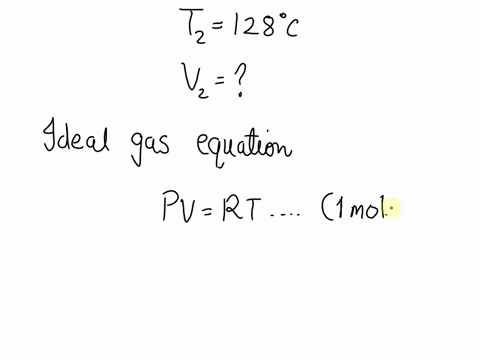 T₂ = 128°C
V₂ = ?
Ideal gas equation
PV = RT .... (1 mol.